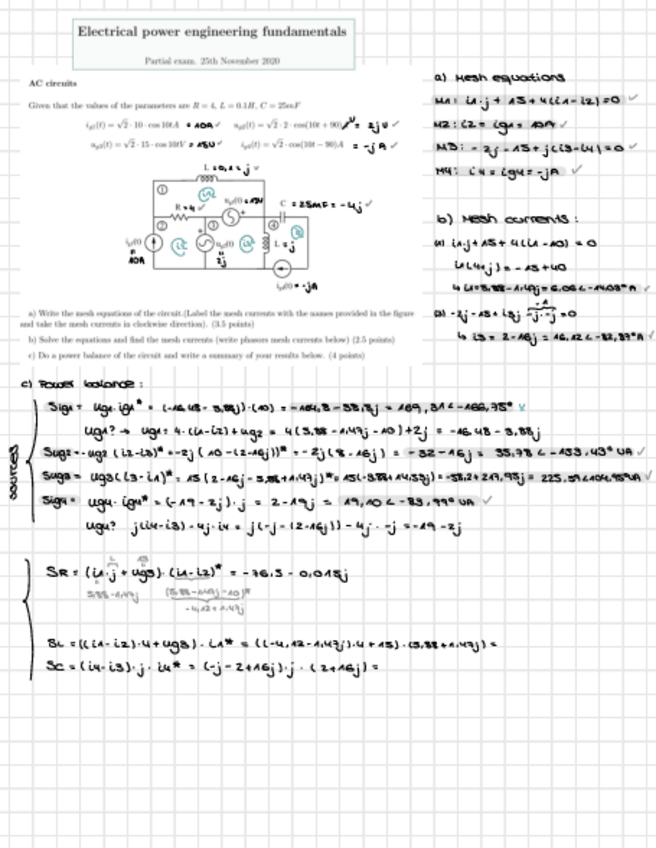 Electrical power engineering fundamentals
Partial exam. 25th November 2020
AC circuits
Given that the values of the parameters are R = 4, L = 0.1H, C = 25mF
i_g1(t) = √2 · 10 · cos 10t A = 10A ✓ u_g2(t) = √2 · 2 · cos(10t + 90) V = 2j V ✓
u_g3(t) = √2 · 15 · cos 10t V = 15V ✓ i_g4(t) = √2 · cos(10t − 90)A = -j A ✓
L = 0,1 = j
R = 4 ✓
C = 25mF = -4j ✓
L = j
10A
2j
i_g4(t) = -jA
a) Write the mesh equations of the circuit.(Label the mesh currents with the names provided in the figure
and take the mesh currents in clockwise direction). (3.5 points)
b) Solve the equations and find the mesh currents (write phasors mesh currents below) (2.5 points)
c) Do a power balance of the circuit and write a summary of your results below. (4 points)
a) Mesh equations
M1: i1·j + 15 + 4(i1-i2)=0 ✓
M2: i2 = ig1 = 10A ✓
M3: -2j -15 + j(i3-i4)=0 ✓
M4: i4 = ig4 = -jA ✓
b) Mesh currents:
(1) i1·j + 15 + 4(i1-10) = 0
i1(4+j) = -15+40
↳ i1=5,88-1,47j = 6,06∠-14,03°A ✓
-1
(3) -2j -15 + i3j -j·-j =0
↳ i3 = 2-16j = 16,12∠-82,87°A ✓
c) Power balance:
sources
Sig1 = ug1·ig1* = (-16,48-3,88j)·(10) = -164,8-38,8j = 169,31∠-166,75°
ug1? → ug1 = 4·(i1-i2)+ug2 = 4(5,88-1,47j-10)+2j = -16,48-3,88j
Sug2 = -ug2 (i2-i3)* = -2j (10-(2-16j))* = -2j(8-16j) = -32-16j = 35,78∠-153,43° VA ✓
Sug3 = ug3(i3-i1)* = 15(2-16j-5,88+1,47j)* = 15(-3,88+14,53j) = -58,2+217,95j = 225,59∠104,95°VA ✓
Sig4 = ug4·ig4* = (-19-2j)·j = 2-19j = 19,10∠-83,99° VA ✓
ug4? j(i4-i3)-4j·i4 = j(-j-(2-16j))-4j·-j = -19-2j
SR = (i1·j + ug3)·(i1-i2)* = -76,5-0,015j
5,88-1,47j (5,88-1,47j-10)*
-4,12+1,47j
SL = ((i1-i2)·4+ug3)·i1* = ((-4,12-1,47j)·4+15)·(5,88+1,47j) =
SC = (i4-i3)·j·i4* = (-j-2+16j)·j·(2+16j) =